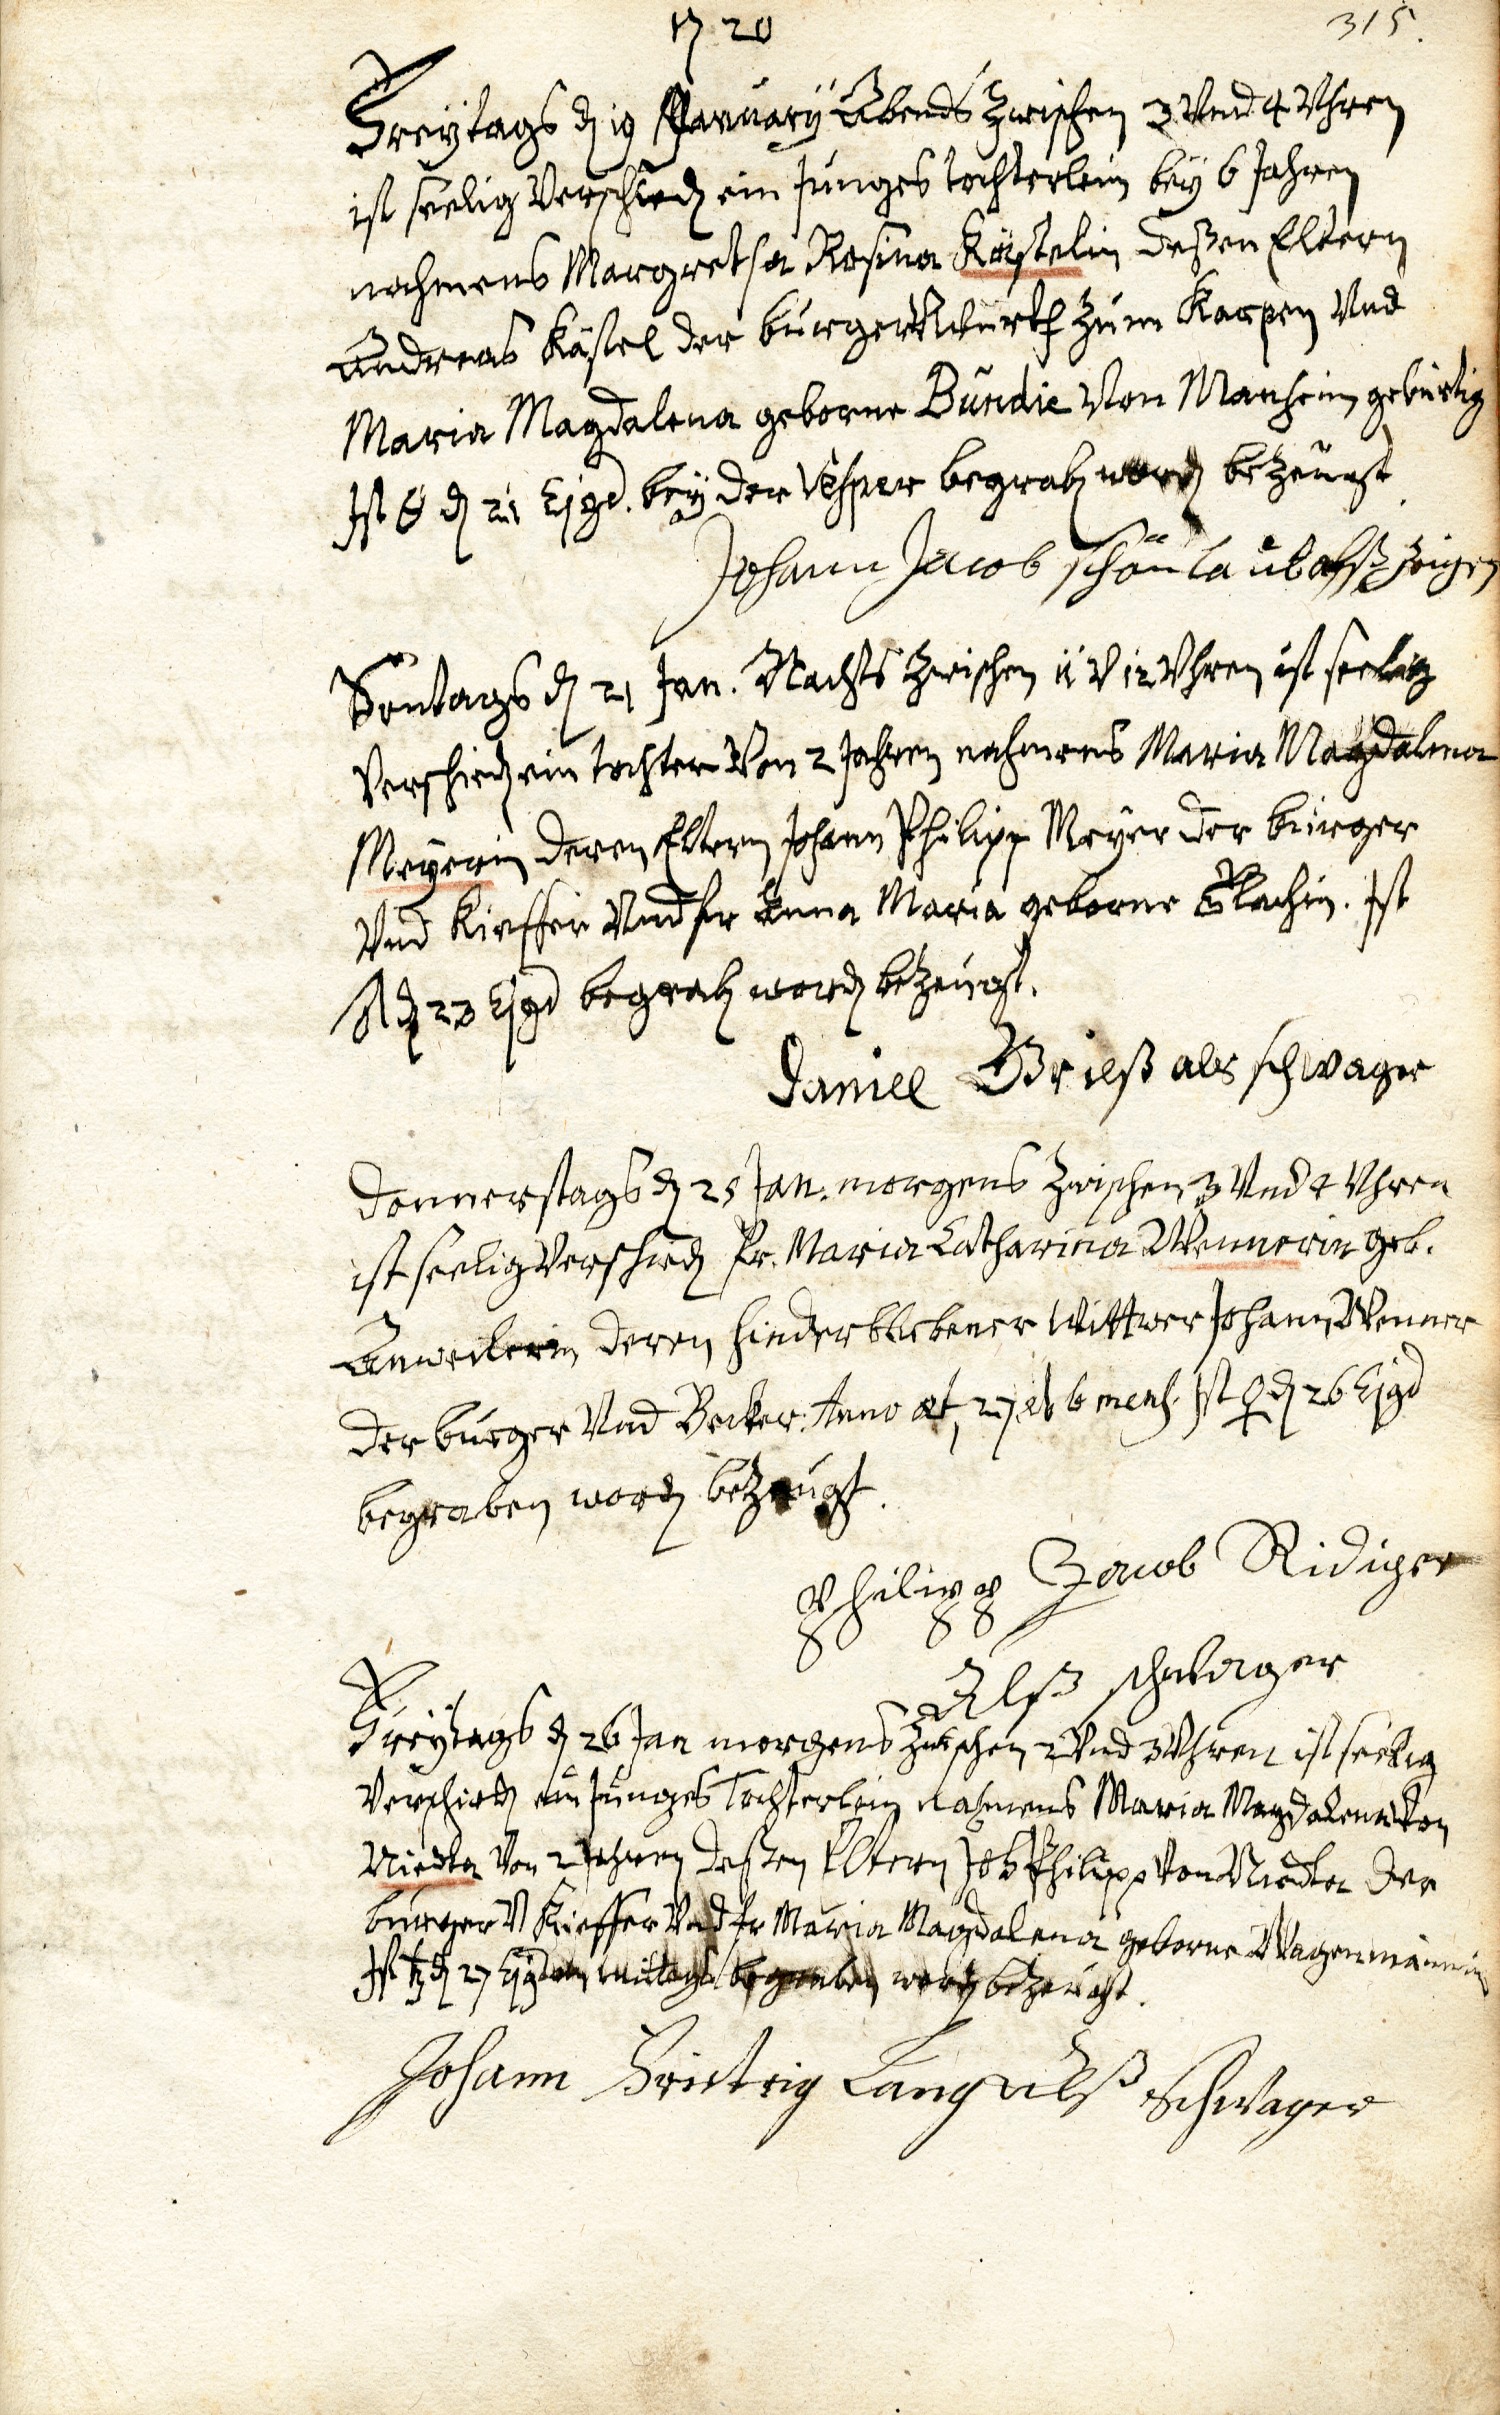 1720
315.
Freÿtags d 19 January Abends zwischen 3 Vnd 4 Vhren
ist seelig Verschied ein Junges tochterlein beÿ 6 Jahren
nahmens Margretha Rosina Kästelin deßen Eltern
Andreas Kästel der burger Würth zum Karpen Vnd
Maria Magdalena geborne Bundie Von Manheim gebürtig
Ist ☉ d 21 Ejgd. beÿ der Vesper begrab word bezeugt
Johann Jacob schönlaub alß zeigen
Sontags d 21 Jan. Nachts zwischen 11 V 12 Vhren ist seelig
Verschied ein tochter Von 2 Jahren nahmens Maria Magdalena
Meÿerin deren Eltern Johann Philipp Meÿer der burger
Vnd Kieffer Vnd fr Anna Maria geborne Blachin. Ist
d 23 Ejgd begrab word bezeugt.
Daniel Grieß als schwager
Donnerstags d 25 Jan. morgens zwischen 3 Vnd 4 Vhren
ist seelig Verschied Fr. Maria Catharina Wennerin geb.
Anweilerin deren hinderbliebener Wittwer Johann Wenner
der burger Vnd Becker. Anno æt, 27 6 mens. Ist ♀ d 26 Ejgd
begraben word bezeugt.
Philipp Jacob Ridiger
Alß schwager
Freÿtags d 26 Jan morgens zwischen 2 Vnd 3 Vhren ist seelig
Verschied ein Junges Tochterlein nahmens Maria Magdalena Von
Niedta Von 2 Jahren deßen Eltern Joh Philipp Von Niedta der
burger V Kieffer Vnd fr Maria Magdalena geborne Wagenmännin
Ist ♄ d 27 Ejgd mittags begraben word bezeugt.
Johann Fristrig Lang alß schwager